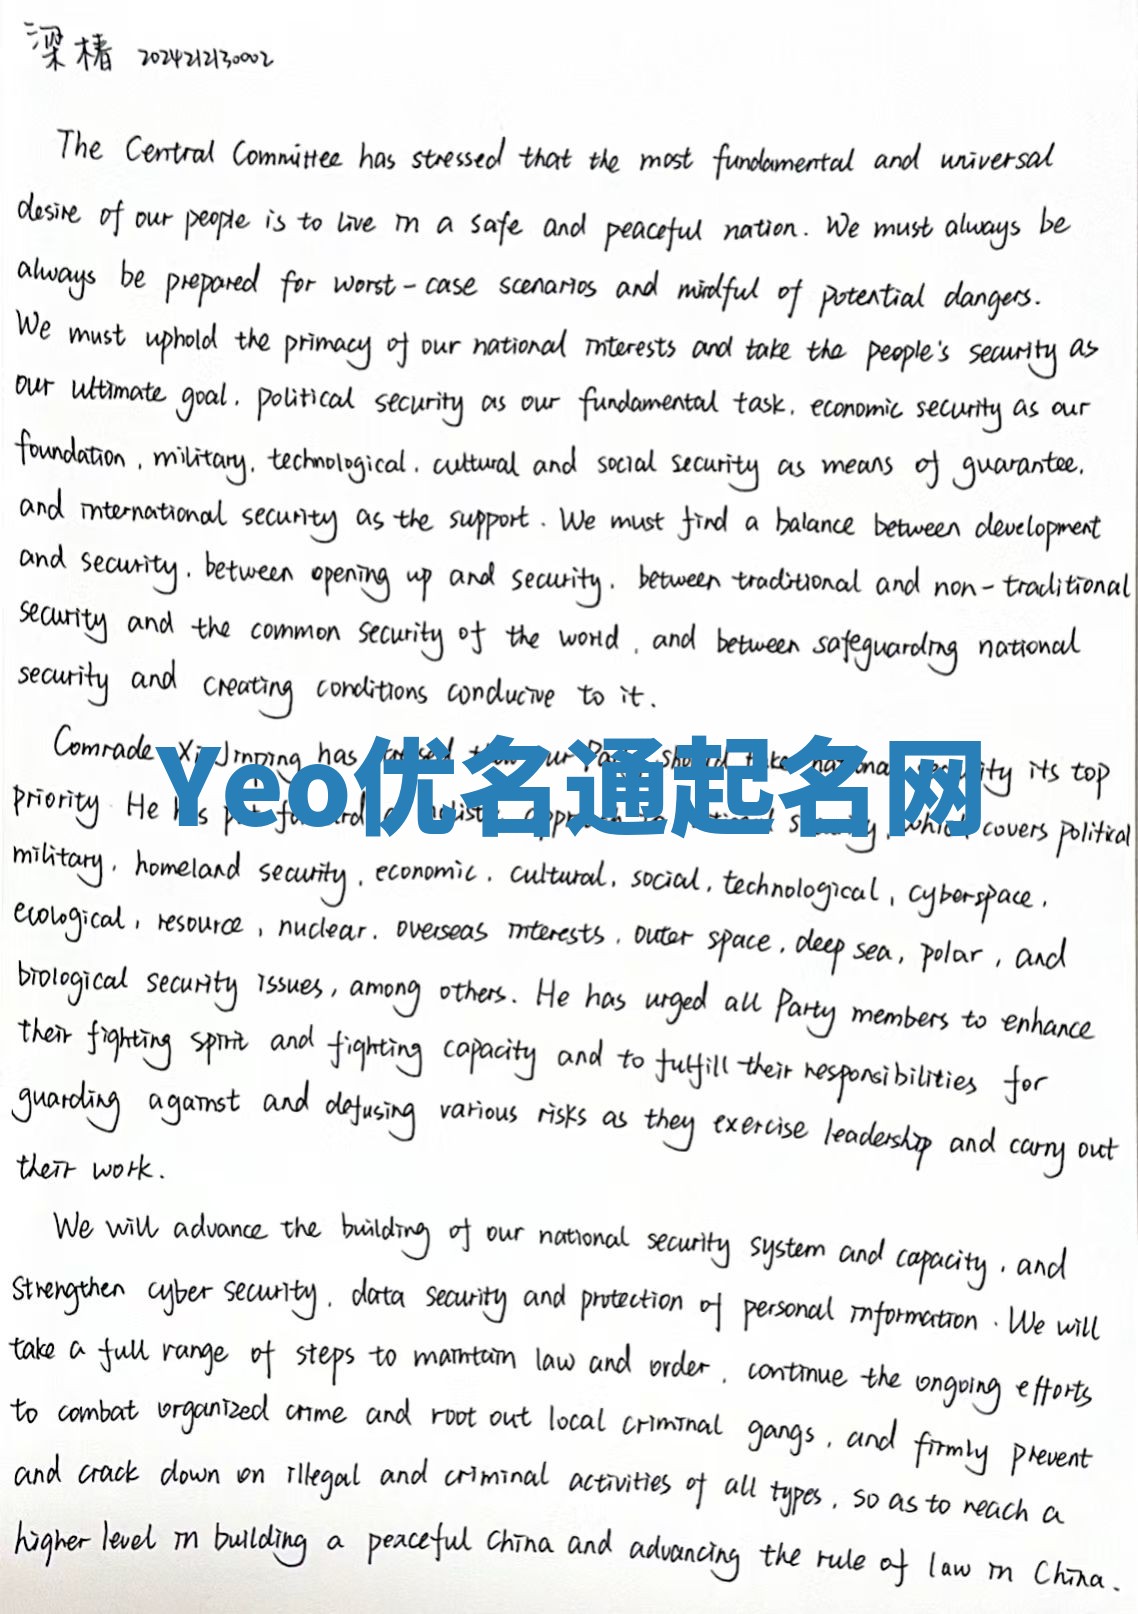 梁椿 2024212130002
The Central Committee has stressed that the most fundamental and universal
desire of our people is to live in a safe and peaceful nation. We must always be
always be prepared for worst-case scenarios and mindful of potential dangers.
We must uphold the primacy of our national interests and take the people's security as
our ultimate goal, political security as our fundamental task, economic security as our
foundation, military, technological, cultural and social security as means of guarantee,
and international security as the support. We must find a balance between development
and security, between opening up and security, between traditional and non-traditional
security and the common security of the world, and between safeguarding national
security and creating conditions conducive to it.
Comrade Xi Jinping has our should national security its top
Yeo优名通起名网
priority. He has which covers political
military, homeland security, economic, cultural, social, technological, cyberspace,
ecological, resource, nuclear, overseas interests, outer space, deep sea, polar, and
biological security issues, among others. He has urged all Party members to enhance
their fighting spirit and fighting capacity and to fulfill their responsibilities for
guarding against and defusing various risks as they exercise leadership and carry out
their work.
We will advance the building of our national security system and capacity, and
strengthen cyber security, data security and protection of personal information. We will
take a full range of steps to maintain law and order, continue the ongoing efforts
to combat organized crime and root out local criminal gangs, and firmly prevent
and crack down on illegal and criminal activities of all types, so as to reach a
higher level in building a peaceful China and advancing the rule of law in China.